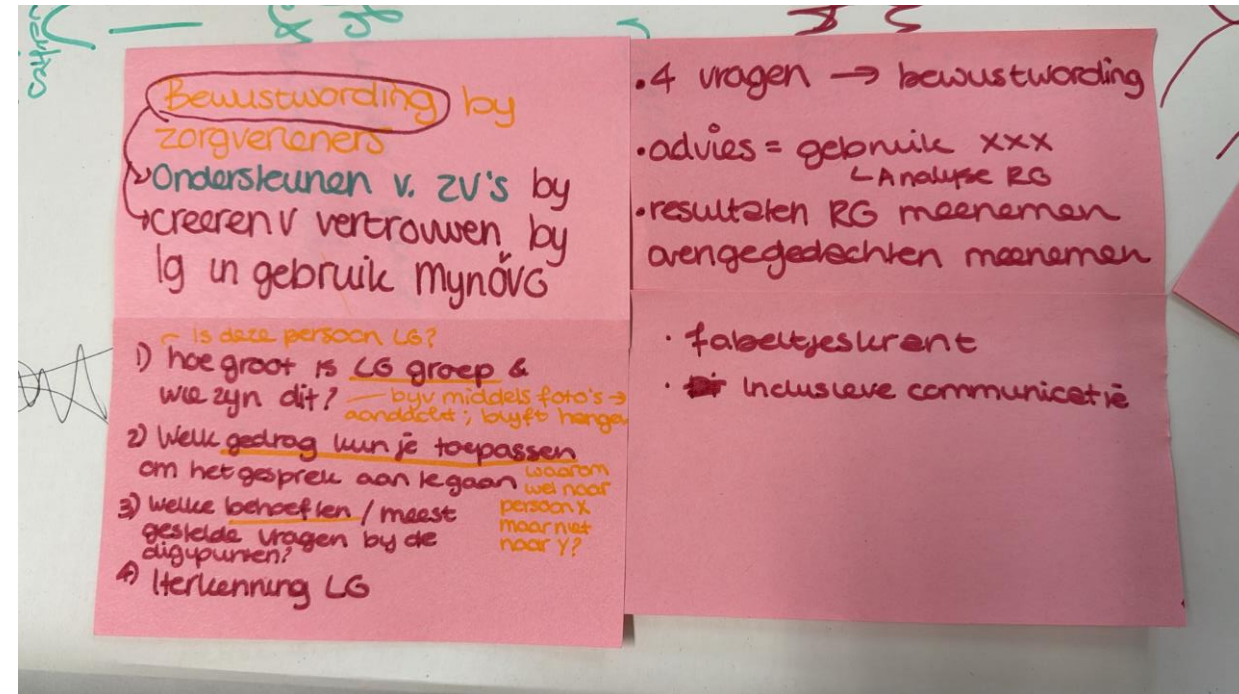 Bewustwording by
zorgverleners
Ondersteunen v. ZV's by
creeren v vertrouwen by
lg in gebruik MynÖVG
is deze persoon LG?
1) hoe groot is LG groep &
wie zyn dit?
byv middels foto's →
aandacht; blyft hangen
2) Welk gedrag kun je toepassen
om het gesprek aan te gaan
waarom
wel naar
persoon X
maar niet
naar Y?
3) Welke behoeften / meest
gestelde vragen by de
digipunten?
4) Herkenning LG
• 4 vragen → bewustwording
• advies = gebruik xxx
Analyse RG
• resultaten RG meenemen
meenemen
• fabeltjeskrant
• Inclusieve communicatie